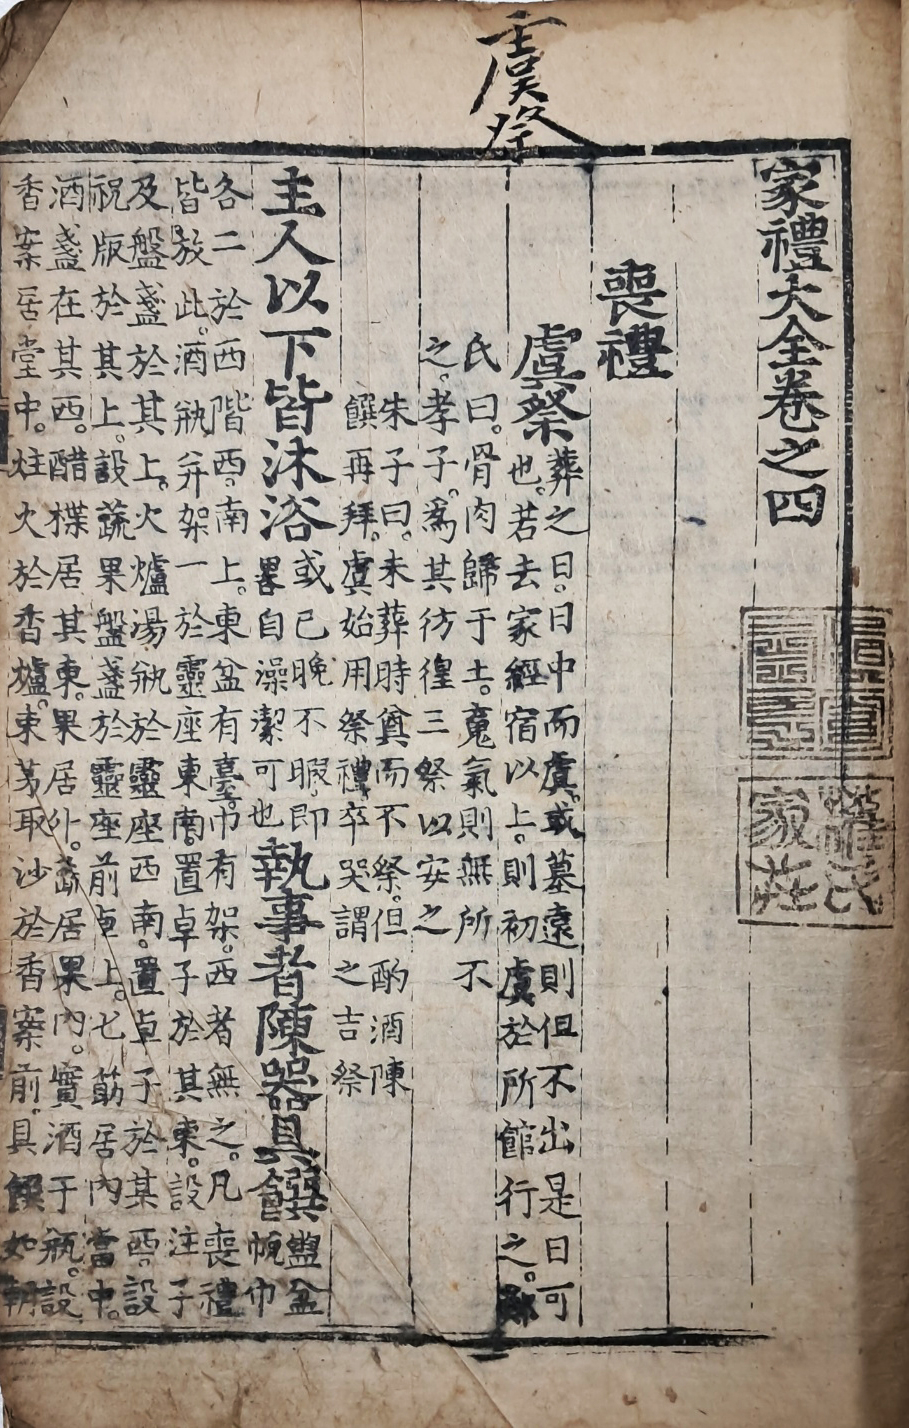 虞祭
家禮大全卷之四
家莊
喪禮
虞祭葬之日日中而虞或墓遠則但不出是日可
也若去家經宿以上則初虞於所館行之鄭
氏曰骨肉歸于土魂氣則無所不
之孝子爲其彷徨三祭以安之
朱子曰未葬時奠而不祭但酌酒陳
饌再拜虞始用祭禮卒哭謂之吉祭
主人以下皆沐浴或已晚不暇即
畧自澡潔可也執事者陳器具饌盥盆
帨巾
各二於西階西南上東盆有臺巾有架西者無之凡喪禮
皆放此酒瓶并架一於靈座東南置卓子於其東設注子
及盤盞於其上火爐湯瓶於靈座西南置卓子於其西設
祝版於其上設蔬果盤盞於靈座前卓上匕筯居內當中
酒盞在其西醋楪居其東果居外蔬居果內實酒于瓶設
香案居堂中炷火於香爐束茅取沙於香案前具饌如朝